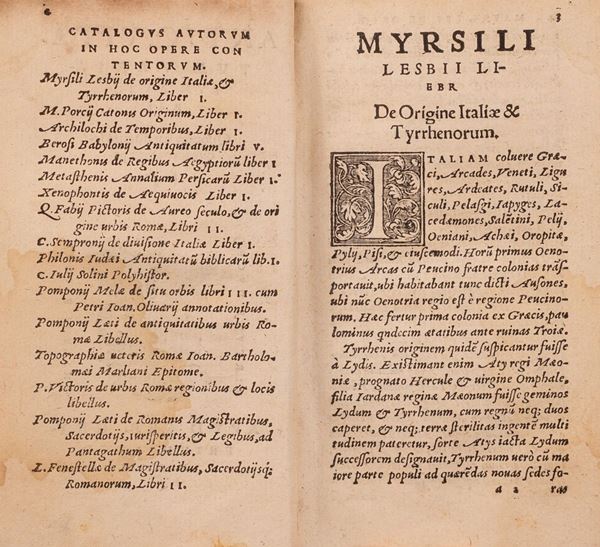 CATALOGVS AVTORVM
IN HOC OPERE CON
TENTORVM.
Myrsili Lesbij de origine Italiæ, &
Tyrrhenorum, Liber I.
M. Porcij Catonis Originum, Liber I.
Archilochi de Temporibus, Liber I.
Berosi Babylonij Antiquitatum libri V.
Manethonis de Regibus Aegyptiorũ liber I
Metasthenis Annalium Persicarũ Liber I.
Xenophontis de Aequiuocis Liber I.
Q. Fabij Pictoris de Aureo seculo, & de ori
gine urbis Romæ, Libri II.
C. Sempronij de diuisione Italiæ Liber I.
Philonis Iudæi Antiquitatũ biblicarũ lib. I.
C. Iulij Solini Polyhistor.
Pomponij Melæ de situ orbis libri III. cum
Petri Ioan. Oliuarij annotationibus.
Pomponij Læti de antiquitatibus urbis Ro-
mæ Libellus.
Topographiæ ueteris Romæ Ioan. Bartholo-
mæi Marliani Epitome.
P. Victoris de urbis Romæ regionibus & locis
libellus.
Pomponij Læti de Romanis Magistratibus,
Sacerdotijs, iurisperitis, & Legibus, ad
Pantagathum Libellus.
L. Fenestellæ de Magistratibus, Sacerdotijsq;
Romanorum, Libri II.
3
MYRSILI
LESBII LI-
EBR
De Origine Italiæ &
Tyrrhenorum.
ITALIAM coluere Græ-
ci, Arcades, Veneti, Ligu
res, Ardeates, Rutuli, Si-
culi, Pelasgi, Iapyges, La-
cedæmones, Salẽtini, Pelij,
Oeniani, Achæi, Oropitæ,
Pylij, Pisi, & eiuscemodi. Horũ primus Oeno-
trius Arcas cũ Peucino fratre colonias trãs-
portauit, ubi habitabant tunc dicti Ausones,
ubi nũc Oenotria regio est è regione Peucino-
rum. Hæc fertur prima colonia ex Græcis, pau
lominus quĩdecim ætatibus ante ruinas Troiæ.
Tyrrhenis originem quidẽ suspicantur fuisse
à Lydis. Existimant enim Aty regi Mæo-
niæ, prognato Hercule & uirgine Omphale,
filia Iardanæ reginæ Mæonum fuisse geminos
Lydum & Tyrrhenum, cum regnũ neq; duos
caperet, & neq; terræ sterilitas ingentẽ multi
tudinem pateretur, sorte Atys iacta Lydum
successorem designauit, Tyrrhenum uerò cũ ma
iore parte populi ad quærẽdas nouas sedes fo-
a 2 ras